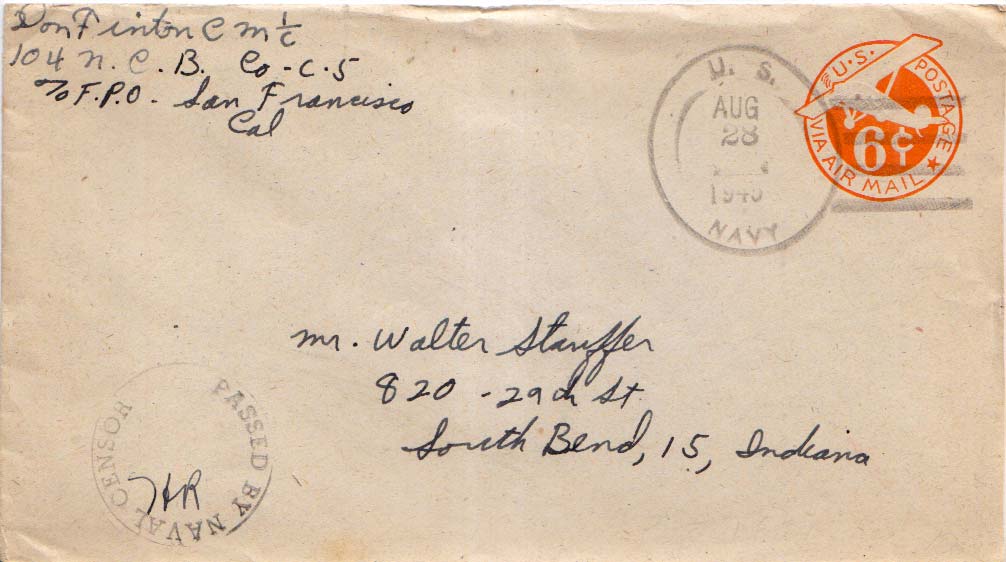 Don Finton C M 1/c
104 N. C. B. Co-C-5
℅ F.P.O. - San Francisco
Cal
U. S.
AUG
28
1945
NAVY
U.S. POSTAGE
6¢
VIA AIR MAIL
Mr. Walter Stauffer
820 - 29th St.
South Bend, 15, Indiana
PASSED BY NAVAL CENSOR